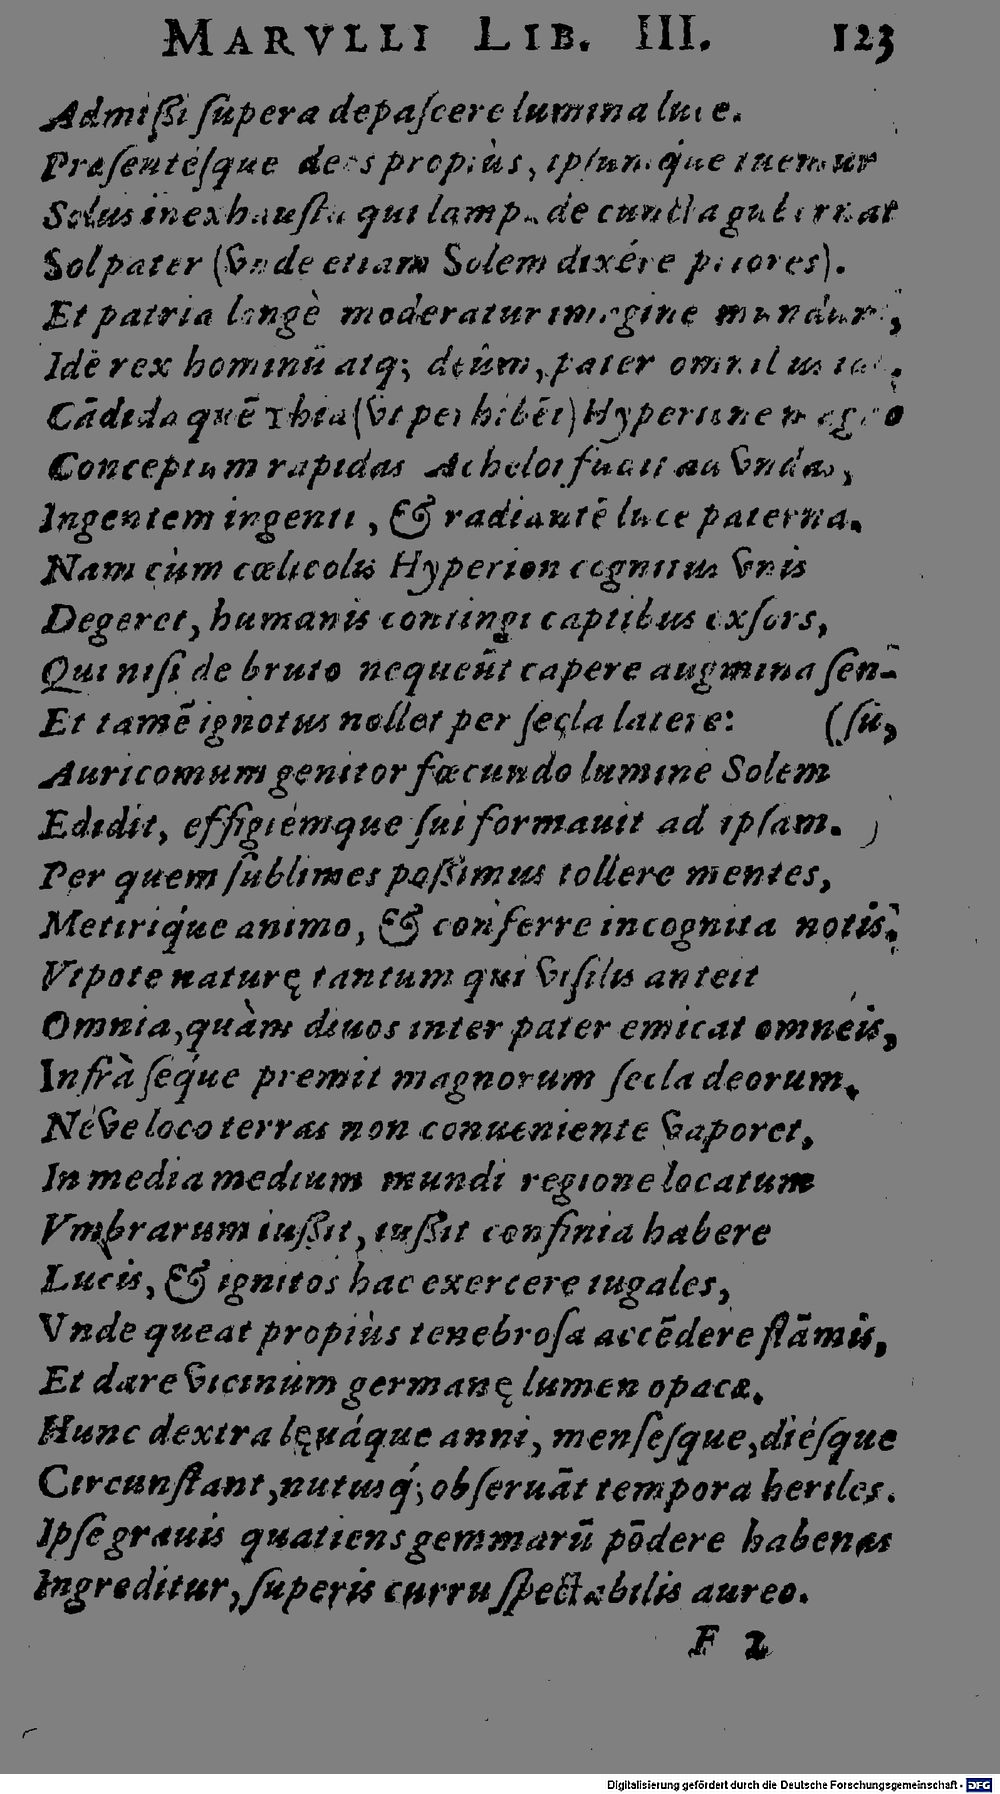 MARVLLI LIB. III. 123
Admißi ſupera depaſcere lumina luce.
Præſentéſque deos propiùs, ipſumque tuemur
Solus inexhauſta qui lampade cuncta gubernat
Sol pater (vnde etiam Solem dixére priores).
Et patria longè moderatur imagine mundum,
Idē rex hominū atq; deûm, pater omnibus
Cādida quē Thia (vt perhibēt) Hyperione magno
Conceptum rapidas Acheloi fudit ad vndas,
Ingentem ingenti, & radiantē luce paterna.
Nam cùm cœlicolis Hyperion cognitus vnis
Degeret, humanis contingi captibus exſors,
Qui niſi de bruto nequeūt capere augmina ſen-
Et tamē ignotus nollet per ſecla latere: (ſū,
Auricomum genitor fœcundo lumine Solem
Edidit, effigiémque ſui formauit ad ipſam.
Per quem ſublimes poßimus tollere mentes,
Metiríque animo, & conferre incognita notis.
Vtpote naturę tantum qui viſilis anteit
Omnia, quàm diuos inter pater emicat omneis,
Infrà ſéque premit magnorum ſecla deorum.
Néve loco terras non conueniente vaporet,
In media medium mundi regione locatum
Vmbrarum iußit, iußit confinia habere
Lucis, & ignitos hac exercere iugales,
Vnde queat propiùs tenebroſa accēdere flāmis,
Et dare vicinum germanę lumen opacæ.
Hunc dextra lęuáque anni, menſéſque, diéſque
Circunſtant, nutusq́; obſeruāt tempora heriles.
Ipſe grauis quatiens gemmarū pōdere habenas
Ingreditur, ſuperis curru ſpectabilis aureo.
F 2
Digitalisierung gefördert durch die Deutsche Forschungsgemeinschaft - DFG